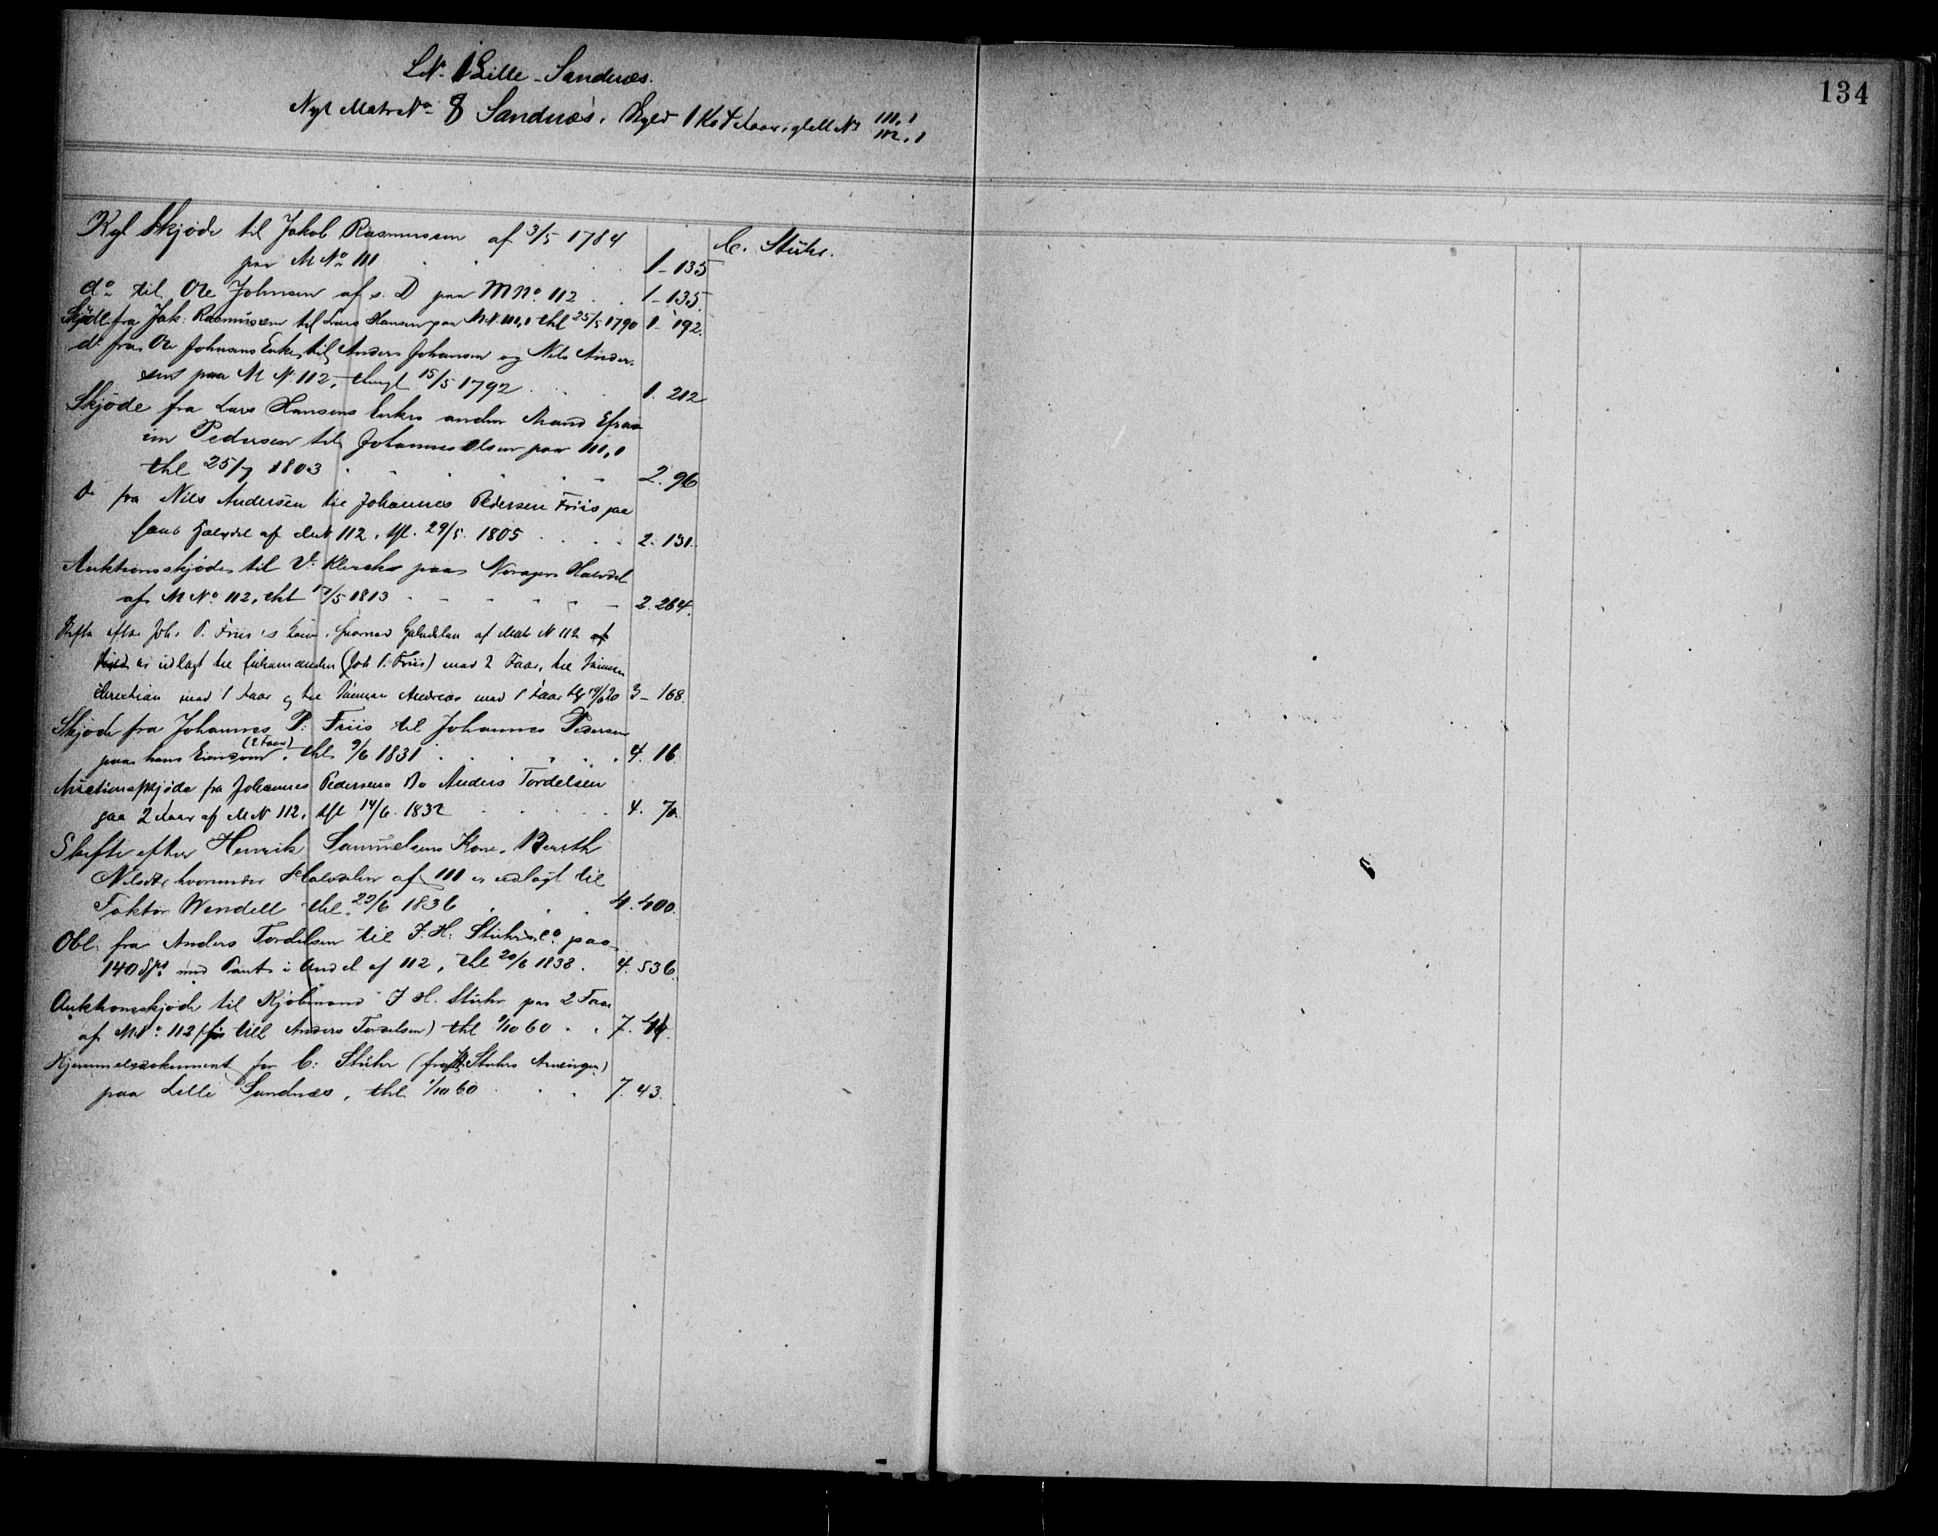 LN. 1 Lille-Sandnæs.
134
Nyt Matr No 8 Sandnæs. Skyld
111,1
112,1
Kgl Skjøde til Jakob Rasmussen af 3/5 1784
paa M No 111 1-135
C. Stuhr.
do til Ole Johnsen af s. D paa M No. 112 1-135
Skjøde fra Jak: Rasmussen til Lars Hansen paa M.N. 111,1 thl 25/5 1790 1. 192.
do fra Ole Johnsens Enke til Anders Johansen og Nils Ander-
sen paa M N. 112, thingl 15/5 1792 1. 212
Skjøde fra Lars Hansens Enkes anden Mand Efra
im Pedersen til Johannes Olsen paa 111,1
thl 25/7 1803 2. 96
Do fra Nils Andersen til Johannes Pedersen Friis paa
Halvdel af M N 112, thl. 29/5. 1805 2. 131.
Auktionsskjøde til V. Klerck paa Halvdel
af M No. 112, thl /5 1813 2. 264.
Skifte efter Joh. P. Friis's Kone, hvorved Halvdelen af Matr N 112 af
er udlagt til Enkemanden (Joh P. Friis) med 2 Faar, til Sønnen
Christian med 1 Faar og til Sønnen Andreas med 1 Faar 3-168.
Skjøde fra Johannes P. Friis til Johannes Pedersen
(2 Faar)
paa hans Eiendom, thl 9/6 1831 4. 16.
Auctionsskjøde fra Johannes Pedersens Bo Anders Tordelsen
paa 2 Faar af M N 112, thl 14/6. 1832 4. 70.
Skifte efter Henrik Samuelsens Kone, Bereth
Nilsdtr hvorunder Halvdelen af 111 er udlagt til
Faktor Wendell thl. 20/6 1836 4. 400.
Obl. fra Anders Tordelsen til J. H. Stuhr & Co paa
140 Spd med Pant i Andel af 112, thl 20/6 1838. 4. 536.
Auktionsskjøde til Kjøbmand J. H. Stuhr paa 2 Faar
af M No. 112 (før till Anders Tordelsen) thl 1/10 60 7.
Hjemmelsdokument for C. Stuhr (fra Stuhrs Arvinger)
paa Lille Sandnæs, thl 1/10 60 7. 43.